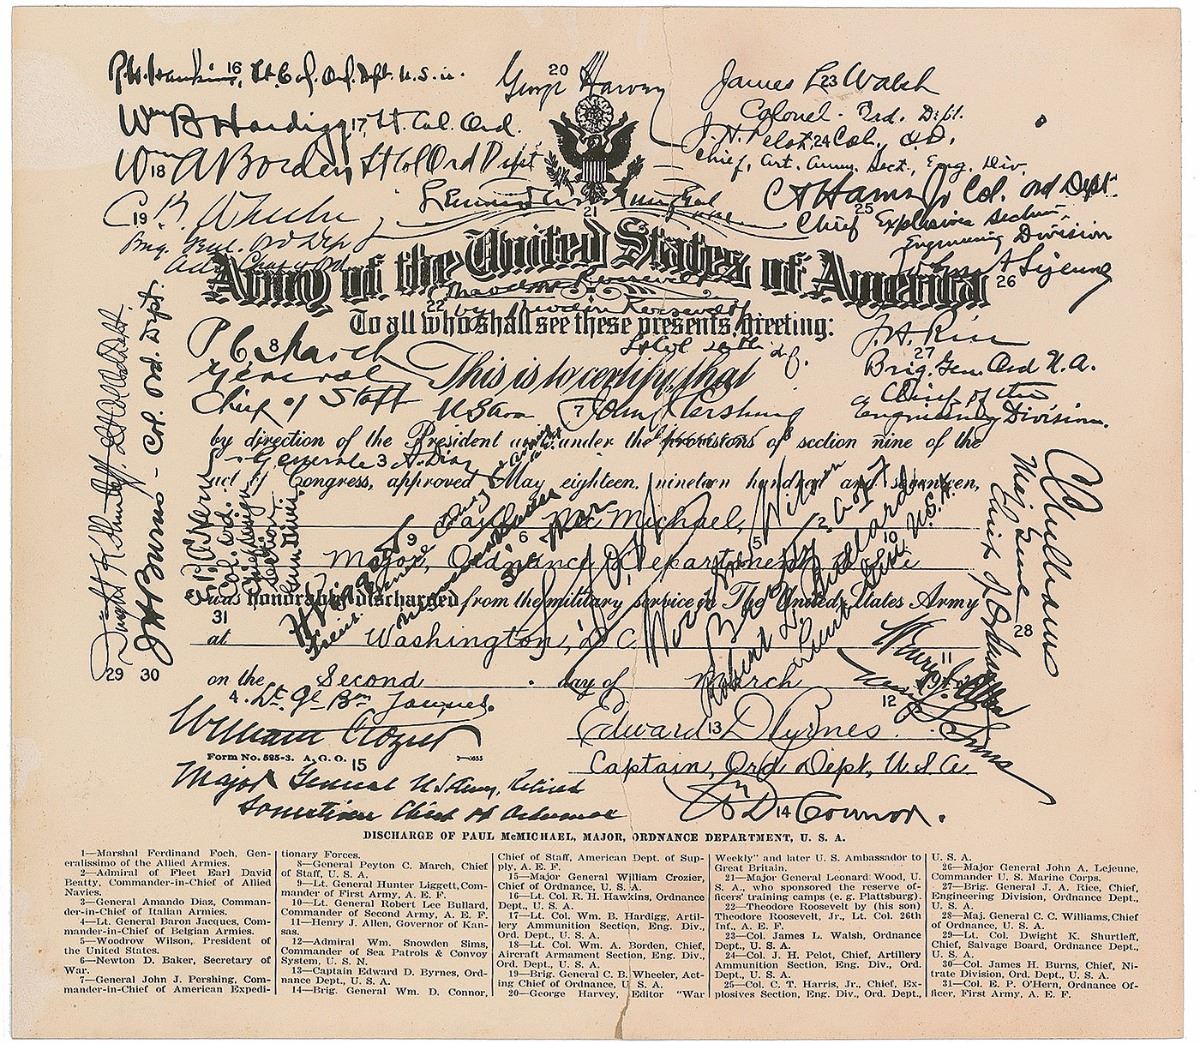 R.H. Hawkins, 16 Lt. Col. Ord. Dept. U.S.A.
Wm B Hardigg 17, Lt. Col. Ord.
Wm 18 A Borden Lt Col Ord Dept
C 19 B. Wheeler
Brig. Genl. Ord Dept
20
George Harvey
21
James L 23 Walsh
Colonel - Ord. Dept.
J. H. Pelot, 24 Col., O.D.
Chief, Art. Ammn. Sect., Eng. Div.
C T Harris Jr Col. Ord Dept.
25
Chief Explosives Section,
Engineering Division
John A Lejeune
26
Army of the United States of America
22 Theodore Roosevelt
by Theodore Roosevelt Jr
Lt Col 26th Inf.
To all who shall see these presents, greeting:
P C 8 March
General
Chief of Staff
U S Army
This is to certify, that
J. A. Rice
27
Brig. Gen. Ord N.A.
Chief of the
Engineering Division.
7 John J Pershing
by direction of the President and under the provisions of section nine of the
Generale 3 A. Diaz
act of Congress, approved May eighteen, nineteen hundred and seventeen,
Paul McMichael,
9 6 5 2 10
Major, Ordnance Department, the
was honorably discharged from the military service in The United States Army
31
at Washington, D.C.
on the Second day of March
4. Lt. Gl. Bn Jacques.
William Crozier
Form No. 525-3. A. G. O. 15
Major General U S Army, Retired
Sometime Chief of Ordnance
Edward 13 D Byrnes
Captain, Ord Dept, U S A
Wm D 14 Connor.
11
12
Woodrow Wilson
Robert L Bullard
Lieut Gen U.S.A.
Dwight K Shurtleff. Lt Col Ord Dept.
29
J H Burns - Col. Ord. Dept.
30
E. P. O'Hern
Col. Ord.
C C Williams
Maj Genl
Chief of Ordnance
28
DISCHARGE OF PAUL McMICHAEL, MAJOR, ORDNANCE DEPARTMENT, U. S. A.
1—Marshal Ferdinand Foch, Gen-
eralissimo of the Allied Armies.
2—Admiral of Fleet Earl David
Beatty, Commander-in-Chief of Allied
Navies.
3—General Amando Diaz, Comman-
der-in-Chief of Italian Armies.
4—Lt. General Baron Jacques, Com-
mander-in-Chief of Belgian Armies.
5—Woodrow Wilson, President of
the United States.
6—Newton D. Baker, Secretary of
War.
7—General John J. Pershing, Com-
mander-in-Chief of American Expedi-
tionary Forces.
8—General Peyton C. March, Chief
of Staff, U. S. A.
9—Lt. General Hunter Liggett, Com-
mander of First Army, A. E. F.
10—Lt. General Robert Lee Bullard,
Commander of Second Army, A. E. F.
11—Henry J. Allen, Governor of Kan-
sas.
12—Admiral Wm. Snowden Sims,
Commander of Sea Patrols & Convoy
System, U. S. N.
13—Captain Edward D. Byrnes, Ord-
nance Dept., U. S. A.
14—Brig. General Wm. D. Connor,
Chief of Staff, American Dept. of Sup-
ply, A. E. F.
15—Major General William Crozier,
Chief of Ordnance, U. S. A.
16—Lt. Col. R. H. Hawkins, Ordnance
Dept., U. S. A.
17—Lt. Col. Wm. B. Hardigg, Artil-
lery Ammunition Section, Eng. Div.,
Ord. Dept., U. S. A.
18—Lt. Col. Wm. A. Borden, Chief,
Aircraft Armament Section, Eng. Div.,
Ord. Dept., U. S. A.
19—Brig. General C. B. Wheeler, Act-
ing Chief of Ordnance, U. S. A.
20—George Harvey, Editor "War
Weekly" and later U. S. Ambassador to
Great Britain.
21—Major General Leonard Wood, U.
S. A., who sponsored the reserve of-
ficers' training camps (e. g. Plattsburg).
22—Theodore Roosevelt by (his son)
Theodore Roosevelt, Jr., Lt. Col. 26th
Inf., A. E. F.
23—Col. James L. Walsh, Ordnance
Dept., U. S. A.
24—Col. J. H. Pelot, Chief, Artillery
Ammunition Section, Eng. Div., Ord.
Dept., U. S. A.
25—Col. C. T. Harris, Jr., Chief, Ex-
plosives Section, Eng. Div., Ord. Dept.,
U. S. A.
26—Major General John A. Lejeune,
Commander U. S. Marine Corps.
27—Brig. General J. A. Rice, Chief,
Engineering Division, Ordnance Dept.,
U. S. A.
28—Maj. General C. C. Williams, Chief
of Ordnance, U. S. A.
29—Lt. Col. Dwight K. Shurtleff,
Chief, Salvage Board, Ordnance Dept.,
U. S. A.
30—Col. James H. Burns, Chief, Ni-
trate Division, Ord. Dept., U. S. A.
31—Col. E. P. O'Hern, Ordnance Of-
ficer, First Army, A. E. F.